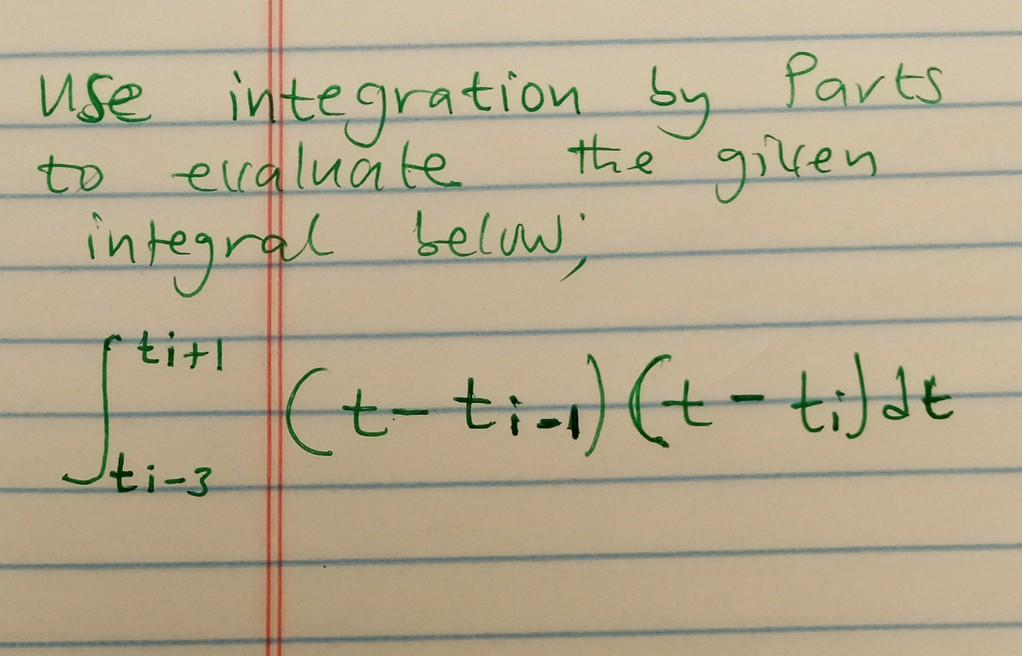 Use integration by Parts
to evaluate the given
integral below;
∫_{t_{i-3}}^{t_{i+1}} (t - t_{i-1})(t - t_i)dt